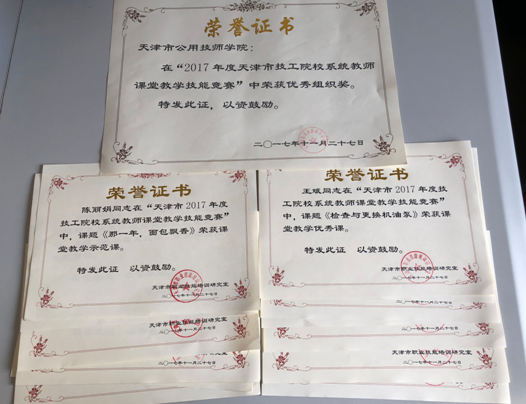 荣誉证书
天津市公用技师学院：
在“2017年度天津市技工院校系统教师
课堂教学技能竞赛”中荣获优秀组织奖。
特发此证，以资鼓励。
二〇一七年十一月二十七日
荣誉证书
陈丽娟同志在“天津市2017年度
技工院校系统教师课堂教学技能竞赛”
中，课题《那一年，面包飘香》荣获课
堂教学示范课。
特发此证 以资鼓励。
天津市职业技能培训研究室
二〇一七年十一月二十七日
天津市职业技能培训研究室
二〇一七年十一月二十七日
荣誉证书
王斌同志在“天津市2017年度技
工院校系统教师课堂教学技能竞赛”
中，课题《检查与更换机油泵》荣获课
堂教学优秀课。
特发此证 以资鼓励。
天津市职业技能培训研究室
二〇一七年十一月二十七日
二〇一七年十一月二十七日
天津市职业技能培训研究室
二〇一七年十一月二十七日